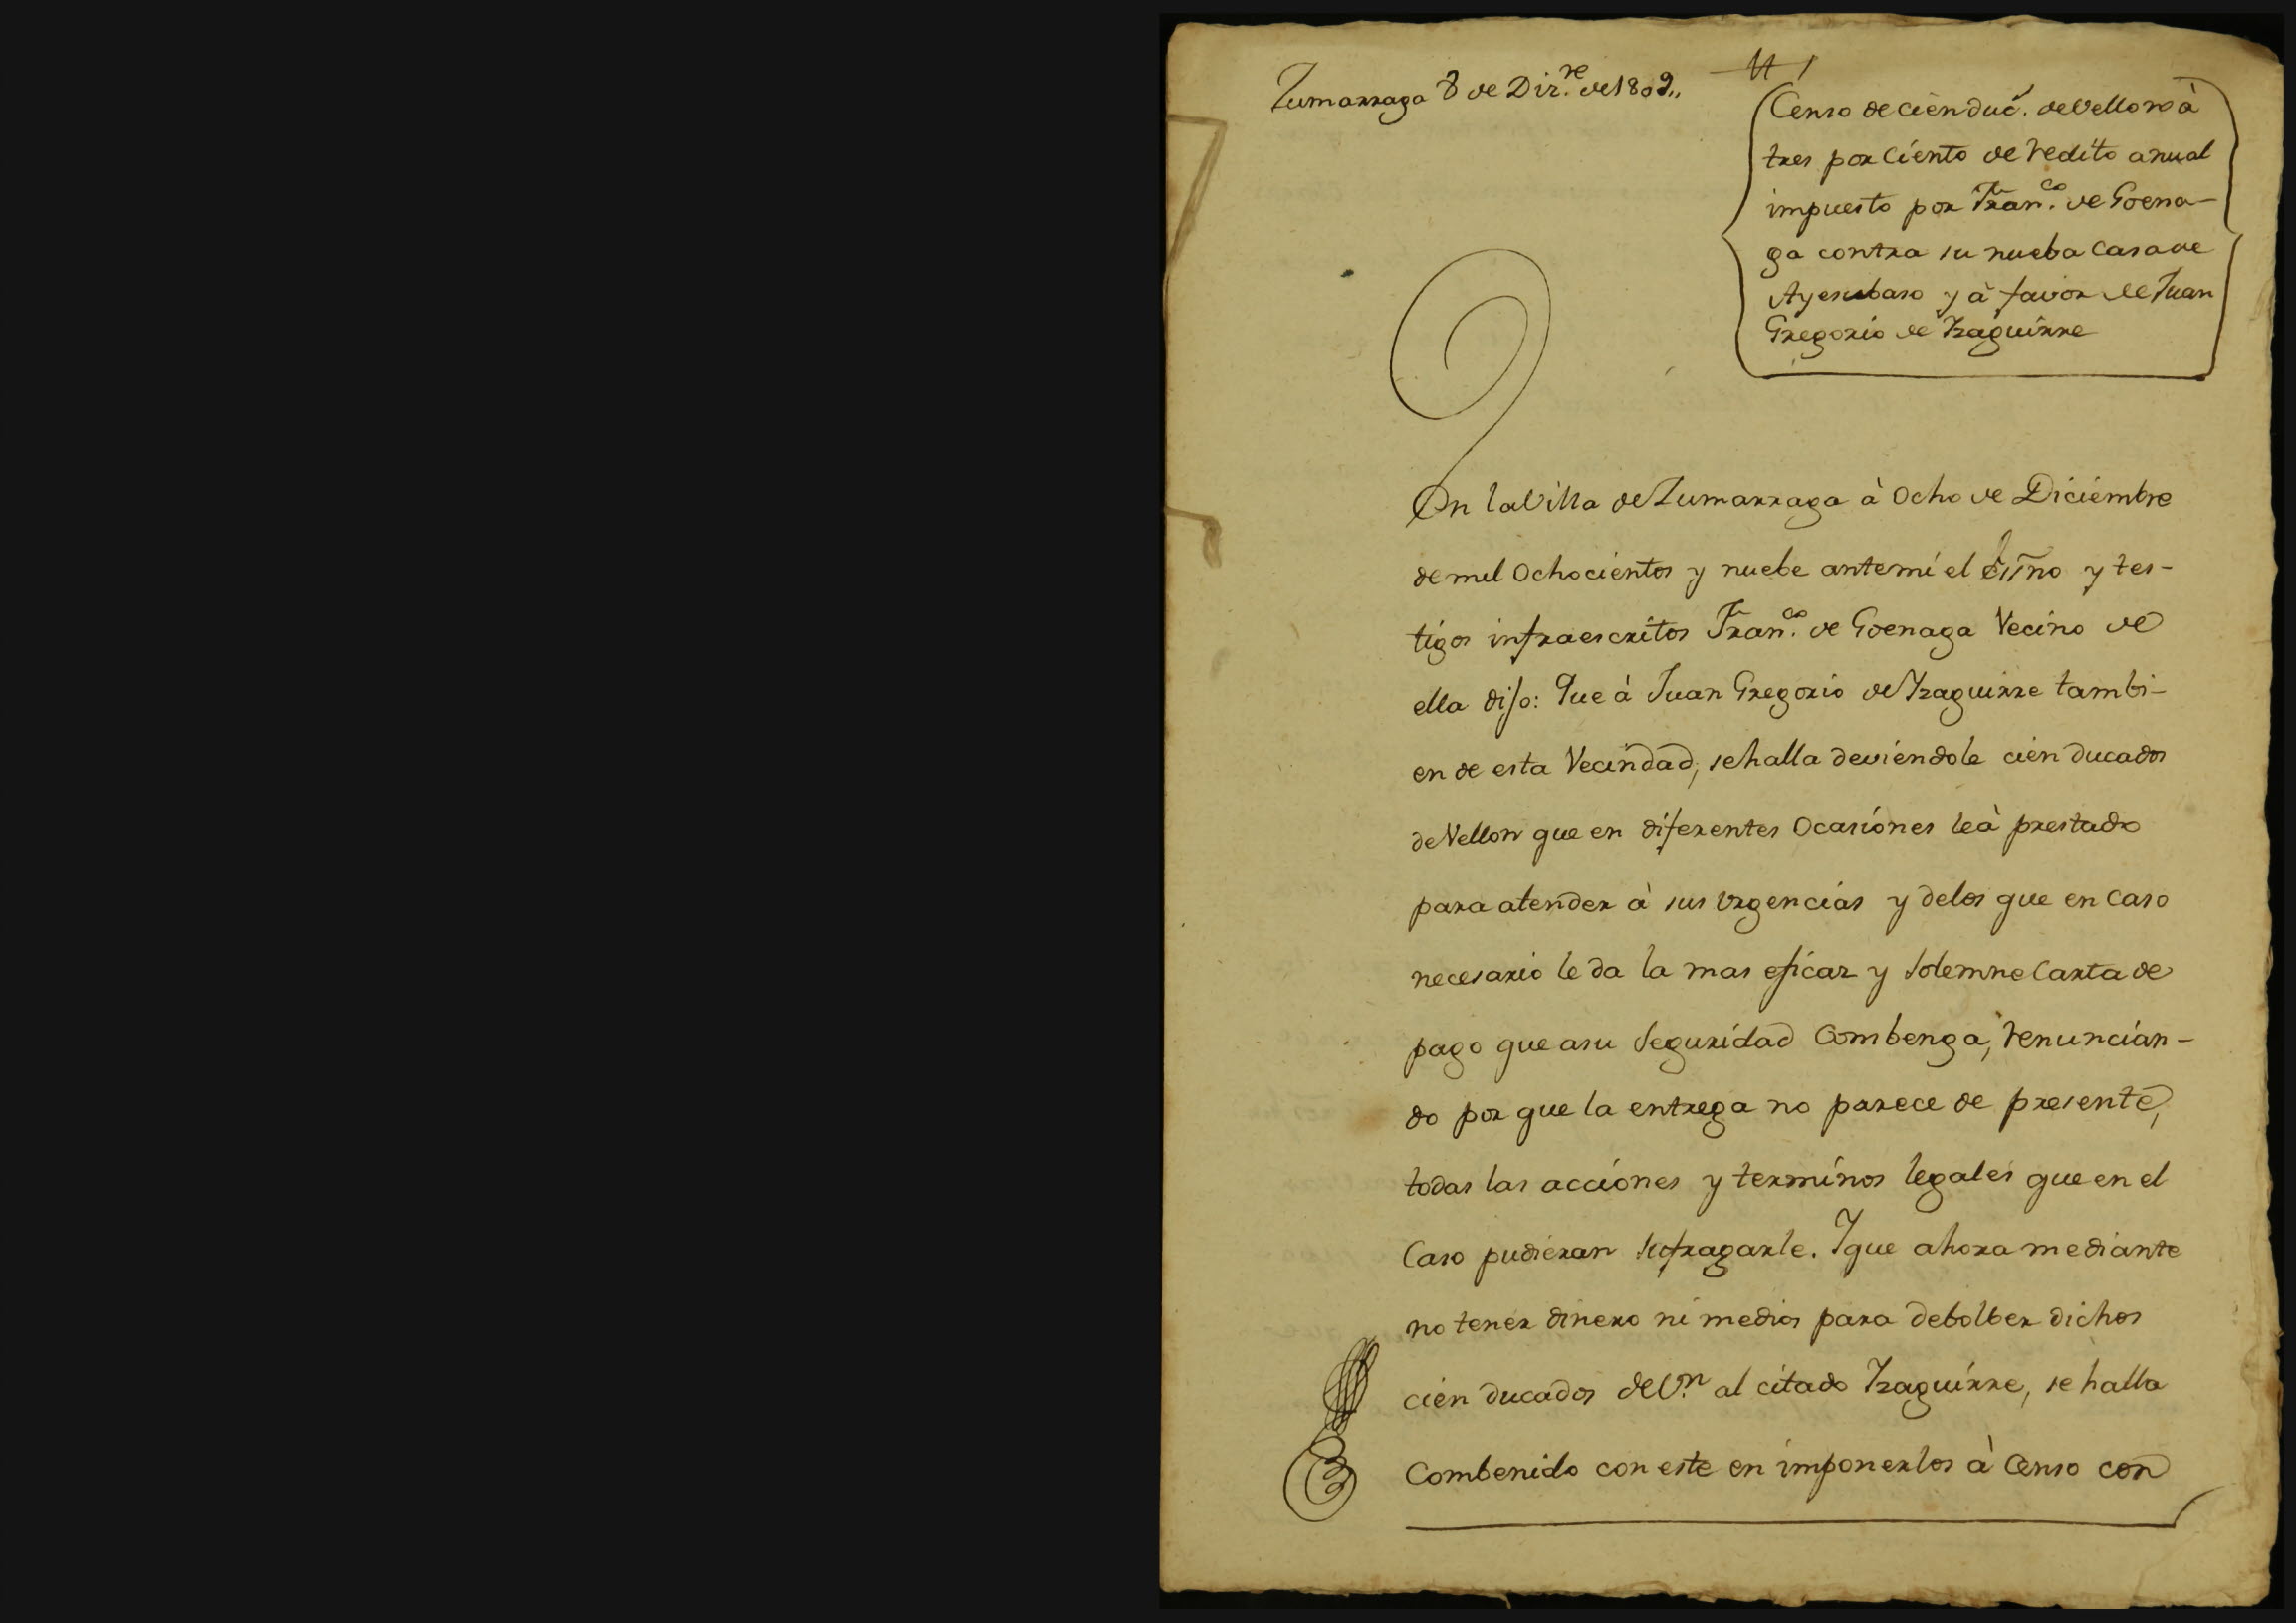 Zumarraga 8 de Diz.re de 1809.,
Censo de cien duc.s de vellon à
tres por ciento de redito anual
impuesto por Fran.co de Goena-
ga contra su nueba Casa de
y à favor de Juan
Gregorio de Yzaguirre
En la Villa de Zumarraga à Ocho de Diciembre
de mil Ochocientos y nuebe ante mi el Essño y tes-
tigos infraescritos Fran.co de Goenaga Vecino de
ella dijo: Que à Juan Gregorio de Yzaguirre tambi-
en de esta Vecindad, se halla deviendole cien ducados
de Vellon que en diferentes Ocasiones le à prestado
para atender à sus Urgencias y de los que en Caso
necesario le da la mas eficaz y Solemne Carta de
pago que a su Seguridad Combenga, renuncian-
do por que la entrega no parece de presente,
todas las acciones y terminos legales que en el
Caso pudieran Sufragarle. Y que ahora mediante
no tener dinero ni medios para debolber dichos
cien ducados de V.n al citado Yzaguirre, se halla
Combenido con este en imponerlos à Censo con